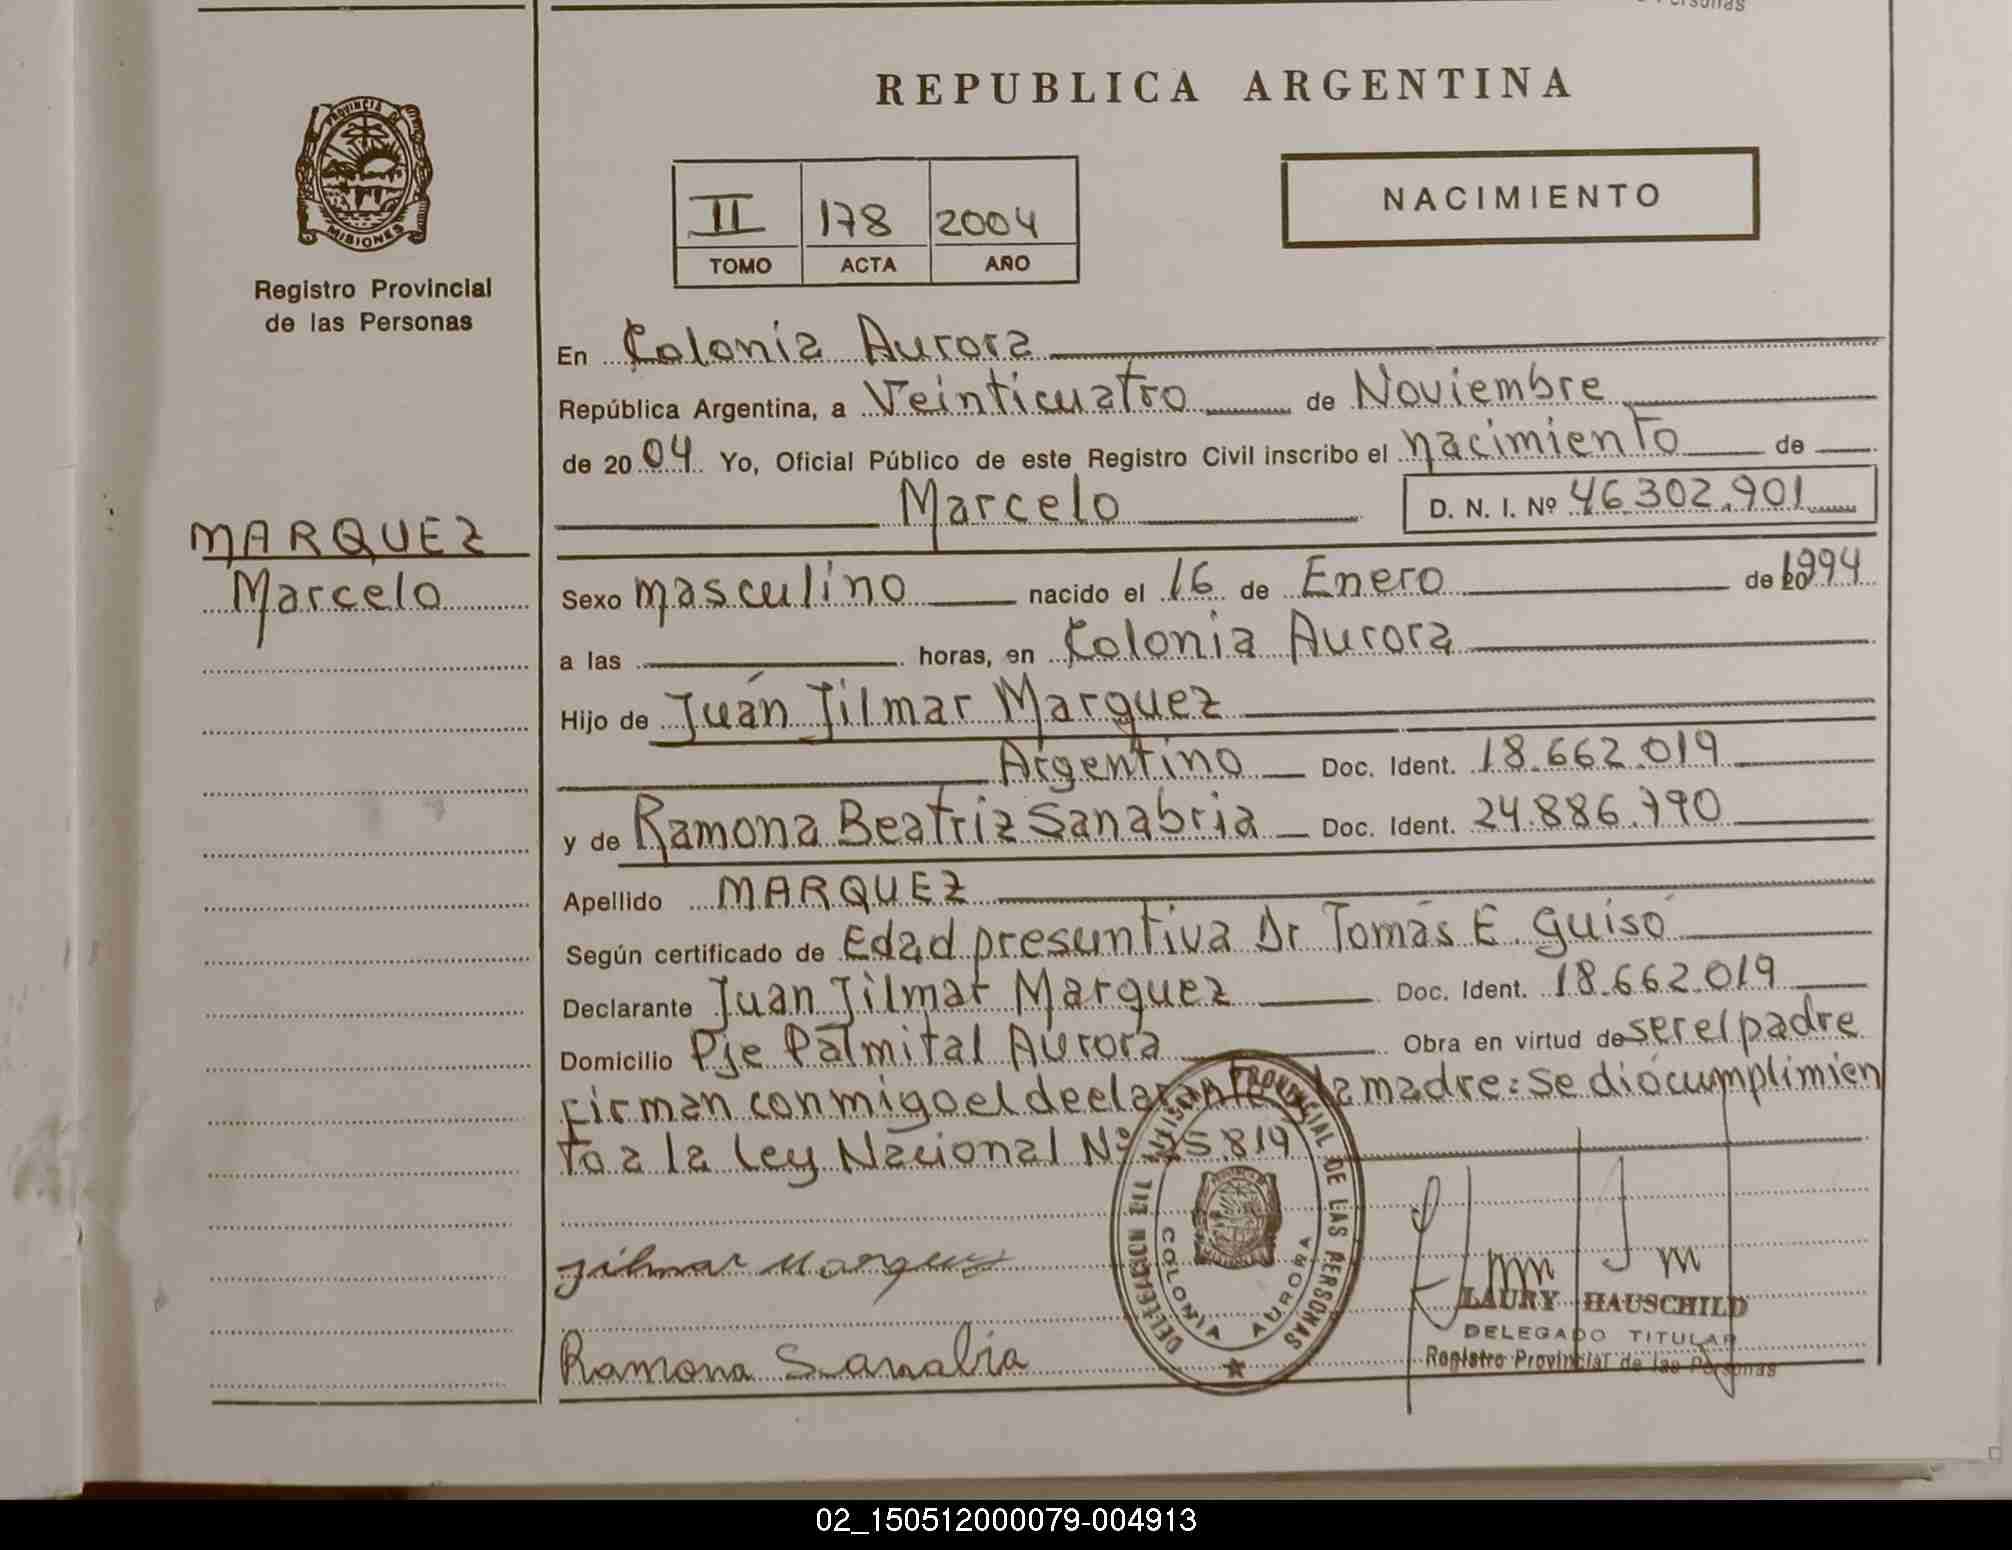 Personas
REPUBLICA ARGENTINA
PROVINCIA DE MISIONES
Registro Provincial
de las Personas
II 178 2004
TOMO ACTA AÑO
NACIMIENTO
En Colonia Aurora
República Argentina, a Veinticuatro de Noviembre
de 20 04 Yo, Oficial Público de este Registro Civil inscribo el nacimiento de
Marcelo D. N. I. Nº 46.302.901
MARQUEZ
Marcelo
Sexo masculino nacido el 16 de Enero de 1994
a las horas, en Colonia Aurora
Hijo de Juán Jilmar Marquez
Argentino Doc. Ident. 18.662.019
y de Ramona Beatriz Sanabria Doc. Ident. 24.886.790
Apellido MARQUEZ
Según certificado de Edad presuntiva Dr Tomás E. Guisó
Declarante Juan Jilmar Marquez Doc. Ident. 18.662.019
Domicilio Pje Palmital Aurora Obra en virtud de ser el padre
firman conmigo el declarante y la madre: Se dió cumplimien
to a la Ley Nacional Nº 25.819
PROVINCIAL DE LAS PERSONAS
COLONIA AURORA
Jilmar Marquez
Ramona Sanabria
LAURY HAUSCHILD
DELEGADO TITULAR
Registro Provincial de las Personas
02_150512000079-004913